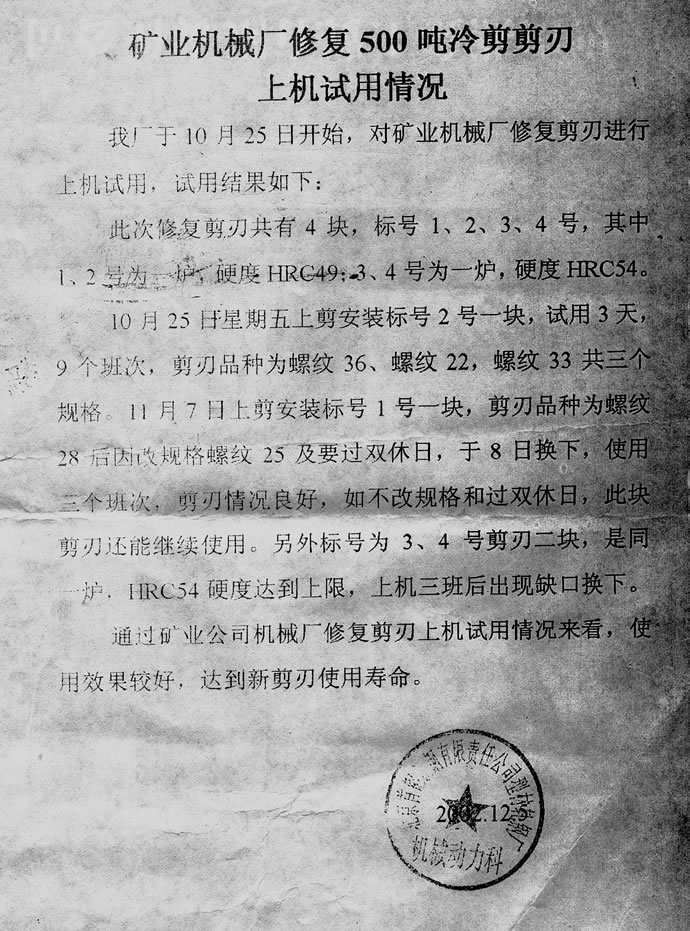 矿业机械厂修复 500 吨冷剪剪刃
上机试用情况
我厂于 10 月 25 日开始，对矿业机械厂修复剪刃进行
上机试用，试用结果如下：
此次修复剪刃共有 4 块，标号 1、2、3、4 号，其中
1、2 号为一炉，硬度 HRC49；3、4 号为一炉，硬度 HRC54。
10 月 25 日星期五上剪安装标号 2 号一块，试用 3 天，
9 个班次，剪刃品种为螺纹 36、螺纹 22，螺纹 33 共三个
规格。11 月 7 日上剪安装标号 1 号一块，剪刃品种为螺纹
28 后因改规格螺纹 25 及要过双休日，于 8 日换下，使用
三个班次，剪刃情况良好，如不改规格和过双休日，此块
剪刃还能继续使用。另外标号为 3、4 号剪刃二块，是同
一炉，HRC54 硬度达到上限，上机三班后出现缺口换下。
通过矿业公司机械厂修复剪刃上机试用情况来看，使
用效果较好，达到新剪刃使用寿命。
有限责任公司型材轧钢厂
2002.12.5
机械动力科